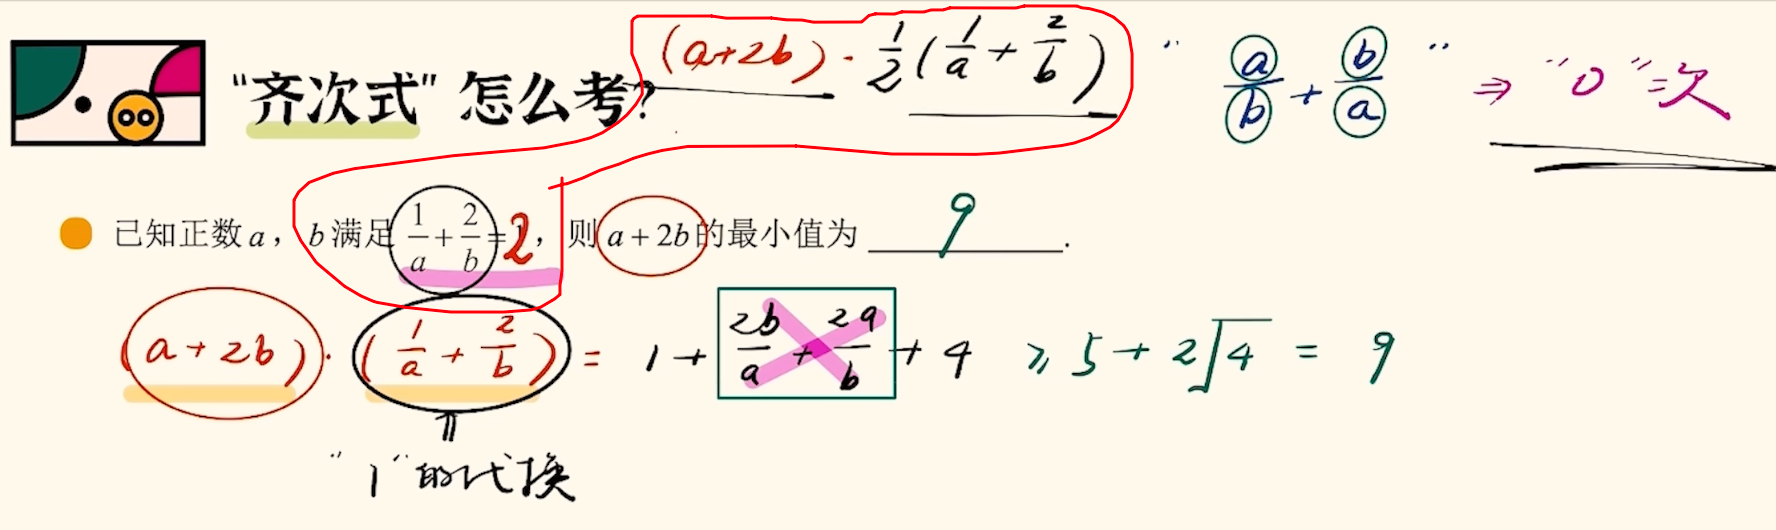 "齐次式"怎么考?
(a+2b)·1/2(1/a+2/b)
"a/b+b/a" ⇒ "0"次
已知正数a，b满足1/a+2/b=2，则a+2b的最小值为 9 .
(a+2b)·(1/a+2/b) = 1+2b/a+2a/b+4 ≥ 5+2√4 = 9
⇑
"1"的代换